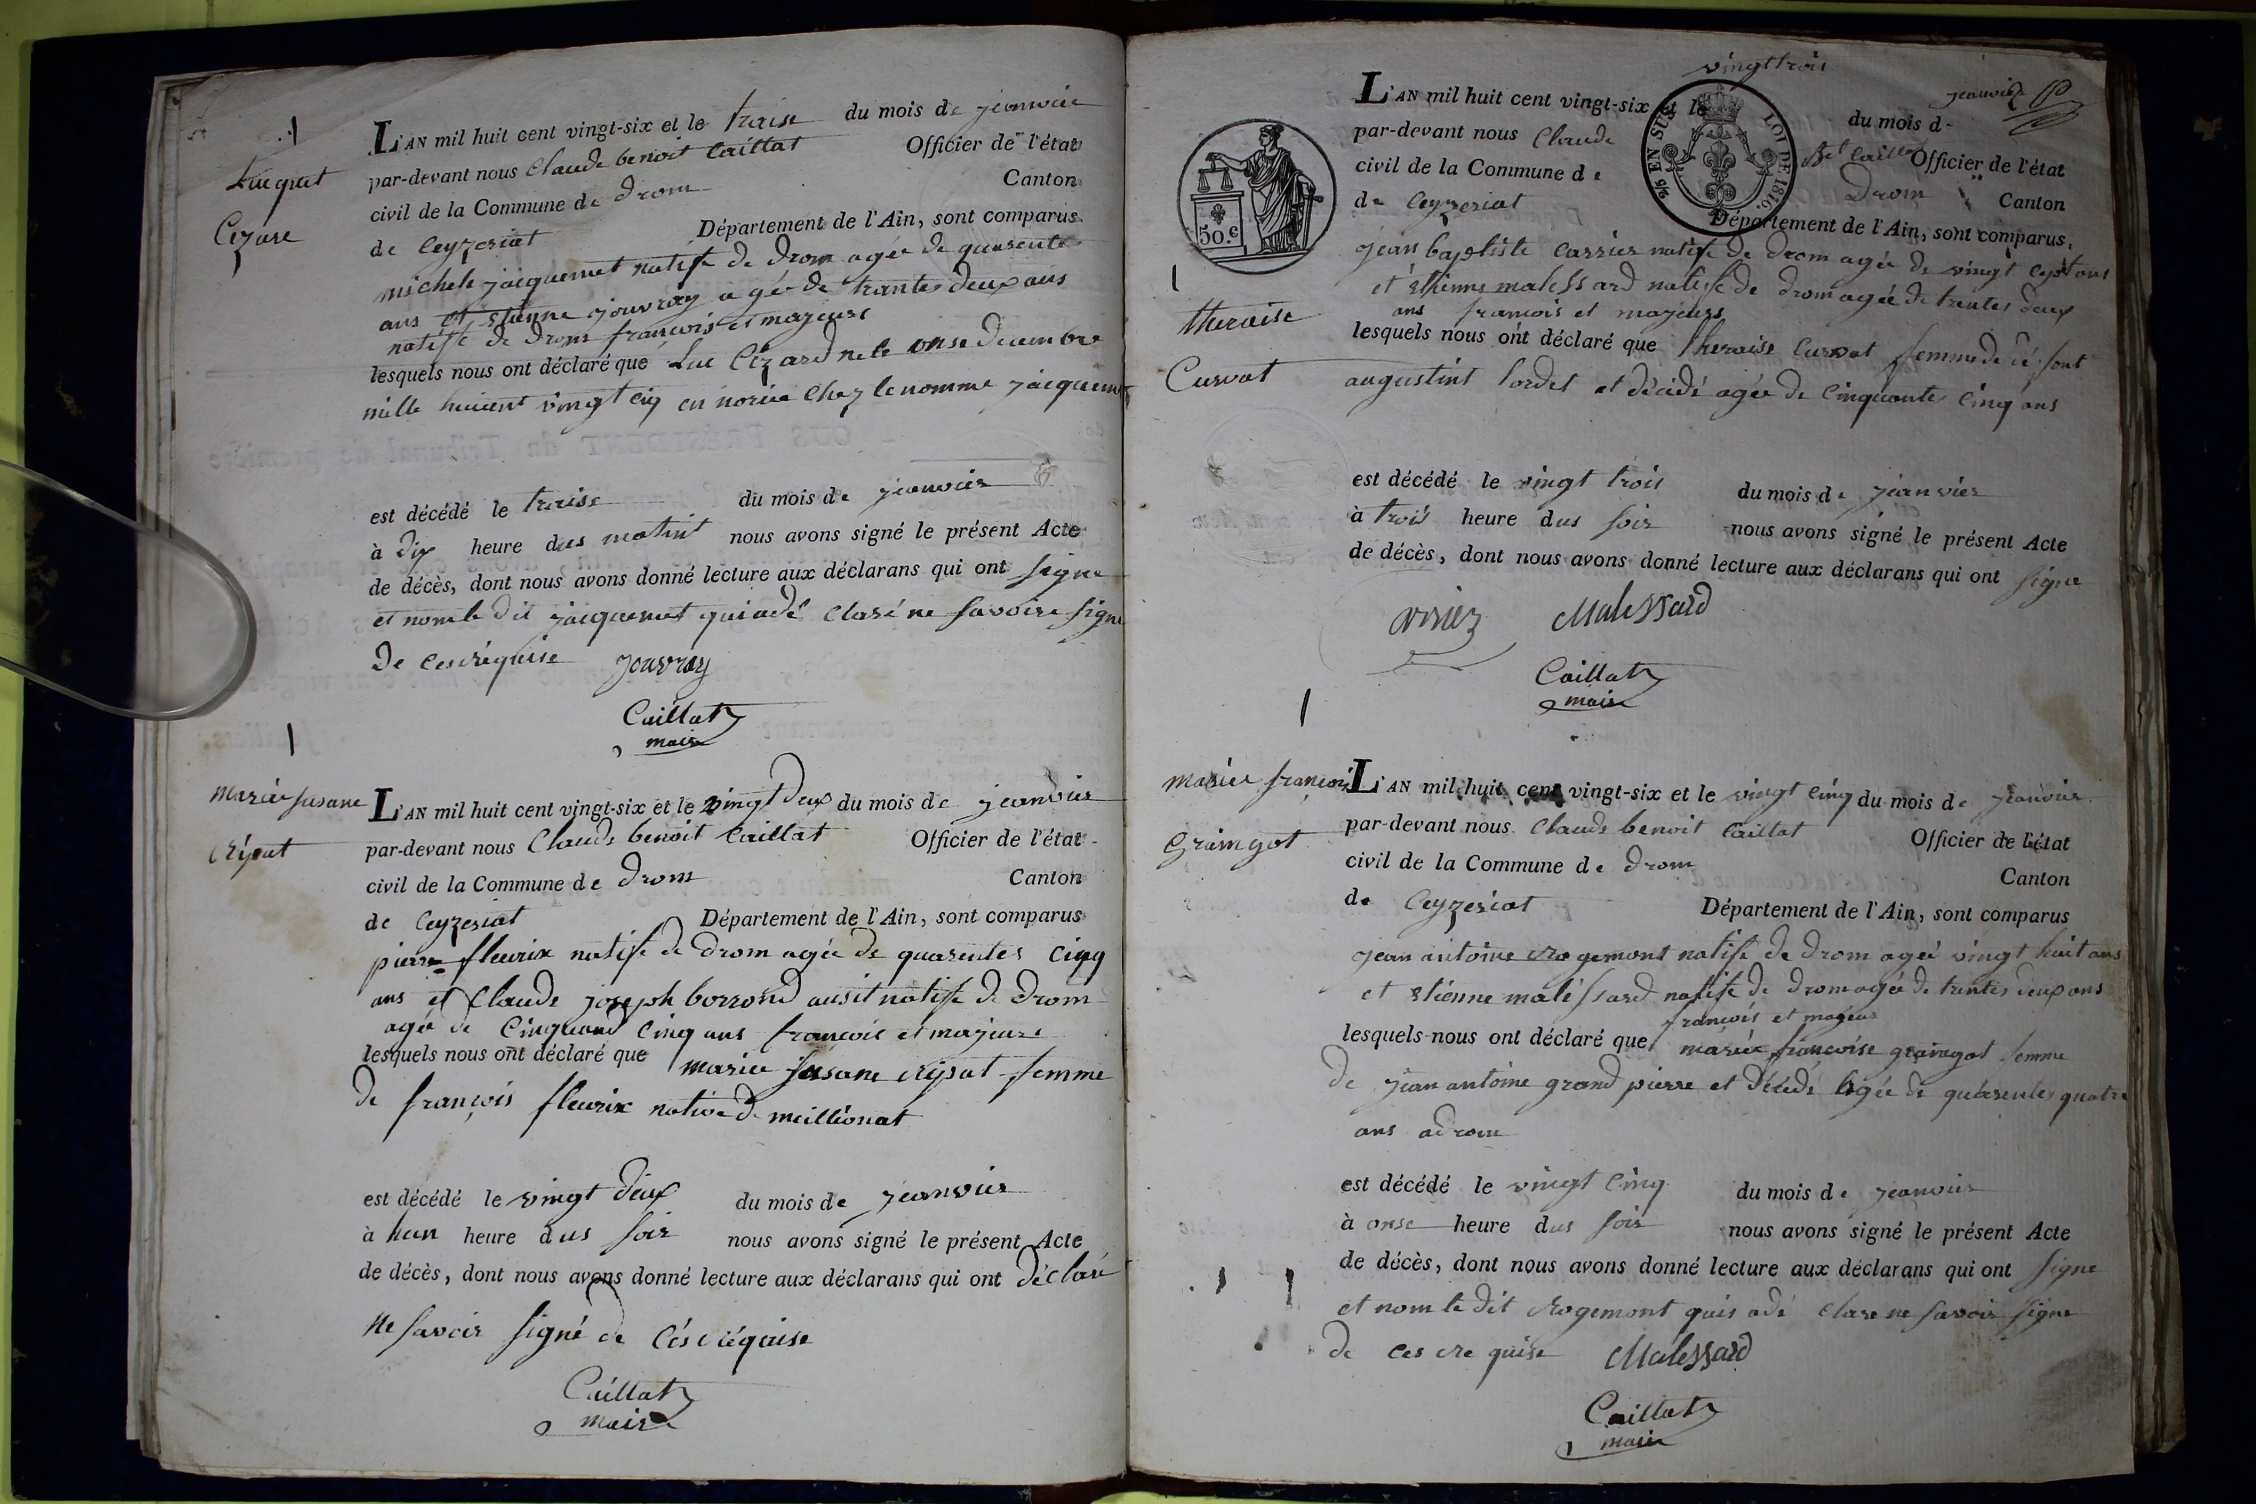 Cezare
L'AN mil huit cent vingt-six et le traise du mois de jeanvier
par-devant nous Claude benoit Caillat Officier de l'état
civil de la Commune de Drom Canton
de Ceyzeriat Département de l'Ain, sont comparus
michele jacquemet natife de Drom agée de quarente
ans et Etienne jouvray agé de trante deux ans
natife de Drom francois et majeurs
lesquels nous ont déclaré que Luc Cezard ne le onse decembre
mille huicent vingt cinq en norice Chez le nomme jacquemet
est décédé le traise du mois de jeanvier
à dix heure dus matint nous avons signé le présent Acte
de décès, dont nous avons donné lecture aux déclarans qui ont signe
et nom le dit jacquemet qui adé claré ne savoire signe
de ces réquise jouvray
Caillat
maire
marie susane
Crépat
L'AN mil huit cent vingt-six et le vingt deux du mois de jeanvier
par-devant nous Claude benoit Caillat Officier de l'état
civil de la Commune de Drom Canton
de Ceyzeriat Département de l'Ain, sont comparus
pierre fleurix natife de Drom agée de quarentes cinq
ans et Claude joseph borrond ausit natife de Drom
agée de Cinquand Cinq ans francois et majeure
lesquels nous ont déclaré que marie susane crépat femme
de françois fleurix native de meillionat
est décédé le vingt deux du mois de jeanvier
à hun heure dus soir nous avons signé le présent Acte
de décès, dont nous avons donné lecture aux déclarans qui ont déclaré
ne savoir signé de cés réquise
Caillat
maire
vingt trois
jeanvier
50.c
25 EN SUS LOI DE 1816.
theraise
Curvat
L'AN mil huit cent vingt-six et le du mois d
par-devant nous Claude Bet Caillat Officier de l'état
civil de la Commune de Drom Canton
de Ceyzeriat Département de l'Ain, sont comparus
jean baptiste Carrier natife de Drom agée de vingt cept ans
et Etienne malessard natife de Drom agée de trentes deux
ans francois et majeurs
lesquels nous ont déclaré que theraise Curvat femme de dé font
augustint Cordet et décédé agée de Cinquante Cinq ans
est décédé le vingt trois du mois de jeanvier
à trois heure dus soir nous avons signé le présent Acte
de décès, dont nous avons donné lecture aux déclarans qui ont signe
Malessard
Caillat
maire
marie francois
Graingot
L'AN mil huit cent vingt-six et le vingt cinq du mois de jeanvier
par-devant nous Claude benoit Caillat Officier de l'état
civil de la Commune de Drom Canton
de Ceyzeriat Département de l'Ain, sont comparus
jean antoine Rogemont natife de Drom ageé vingt huit ans
et Etienne malessard natife de Drom agée de trentes deux ans
francois et majeur
lesquels nous ont déclaré que marie françoise graingot femme
de jean antoine grand pierre et décédé agée de quarentes quatre
ans a Drom
est décédé le vingt Cinq du mois de jeanvier
à onse heure dus soir nous avons signé le présent Acte
de décès, dont nous avons donné lecture aux déclarans qui ont signe
et nom le dit Rogemont quis adé clare ne savoir signe
de ces re quise Malessard
Caillat
maire